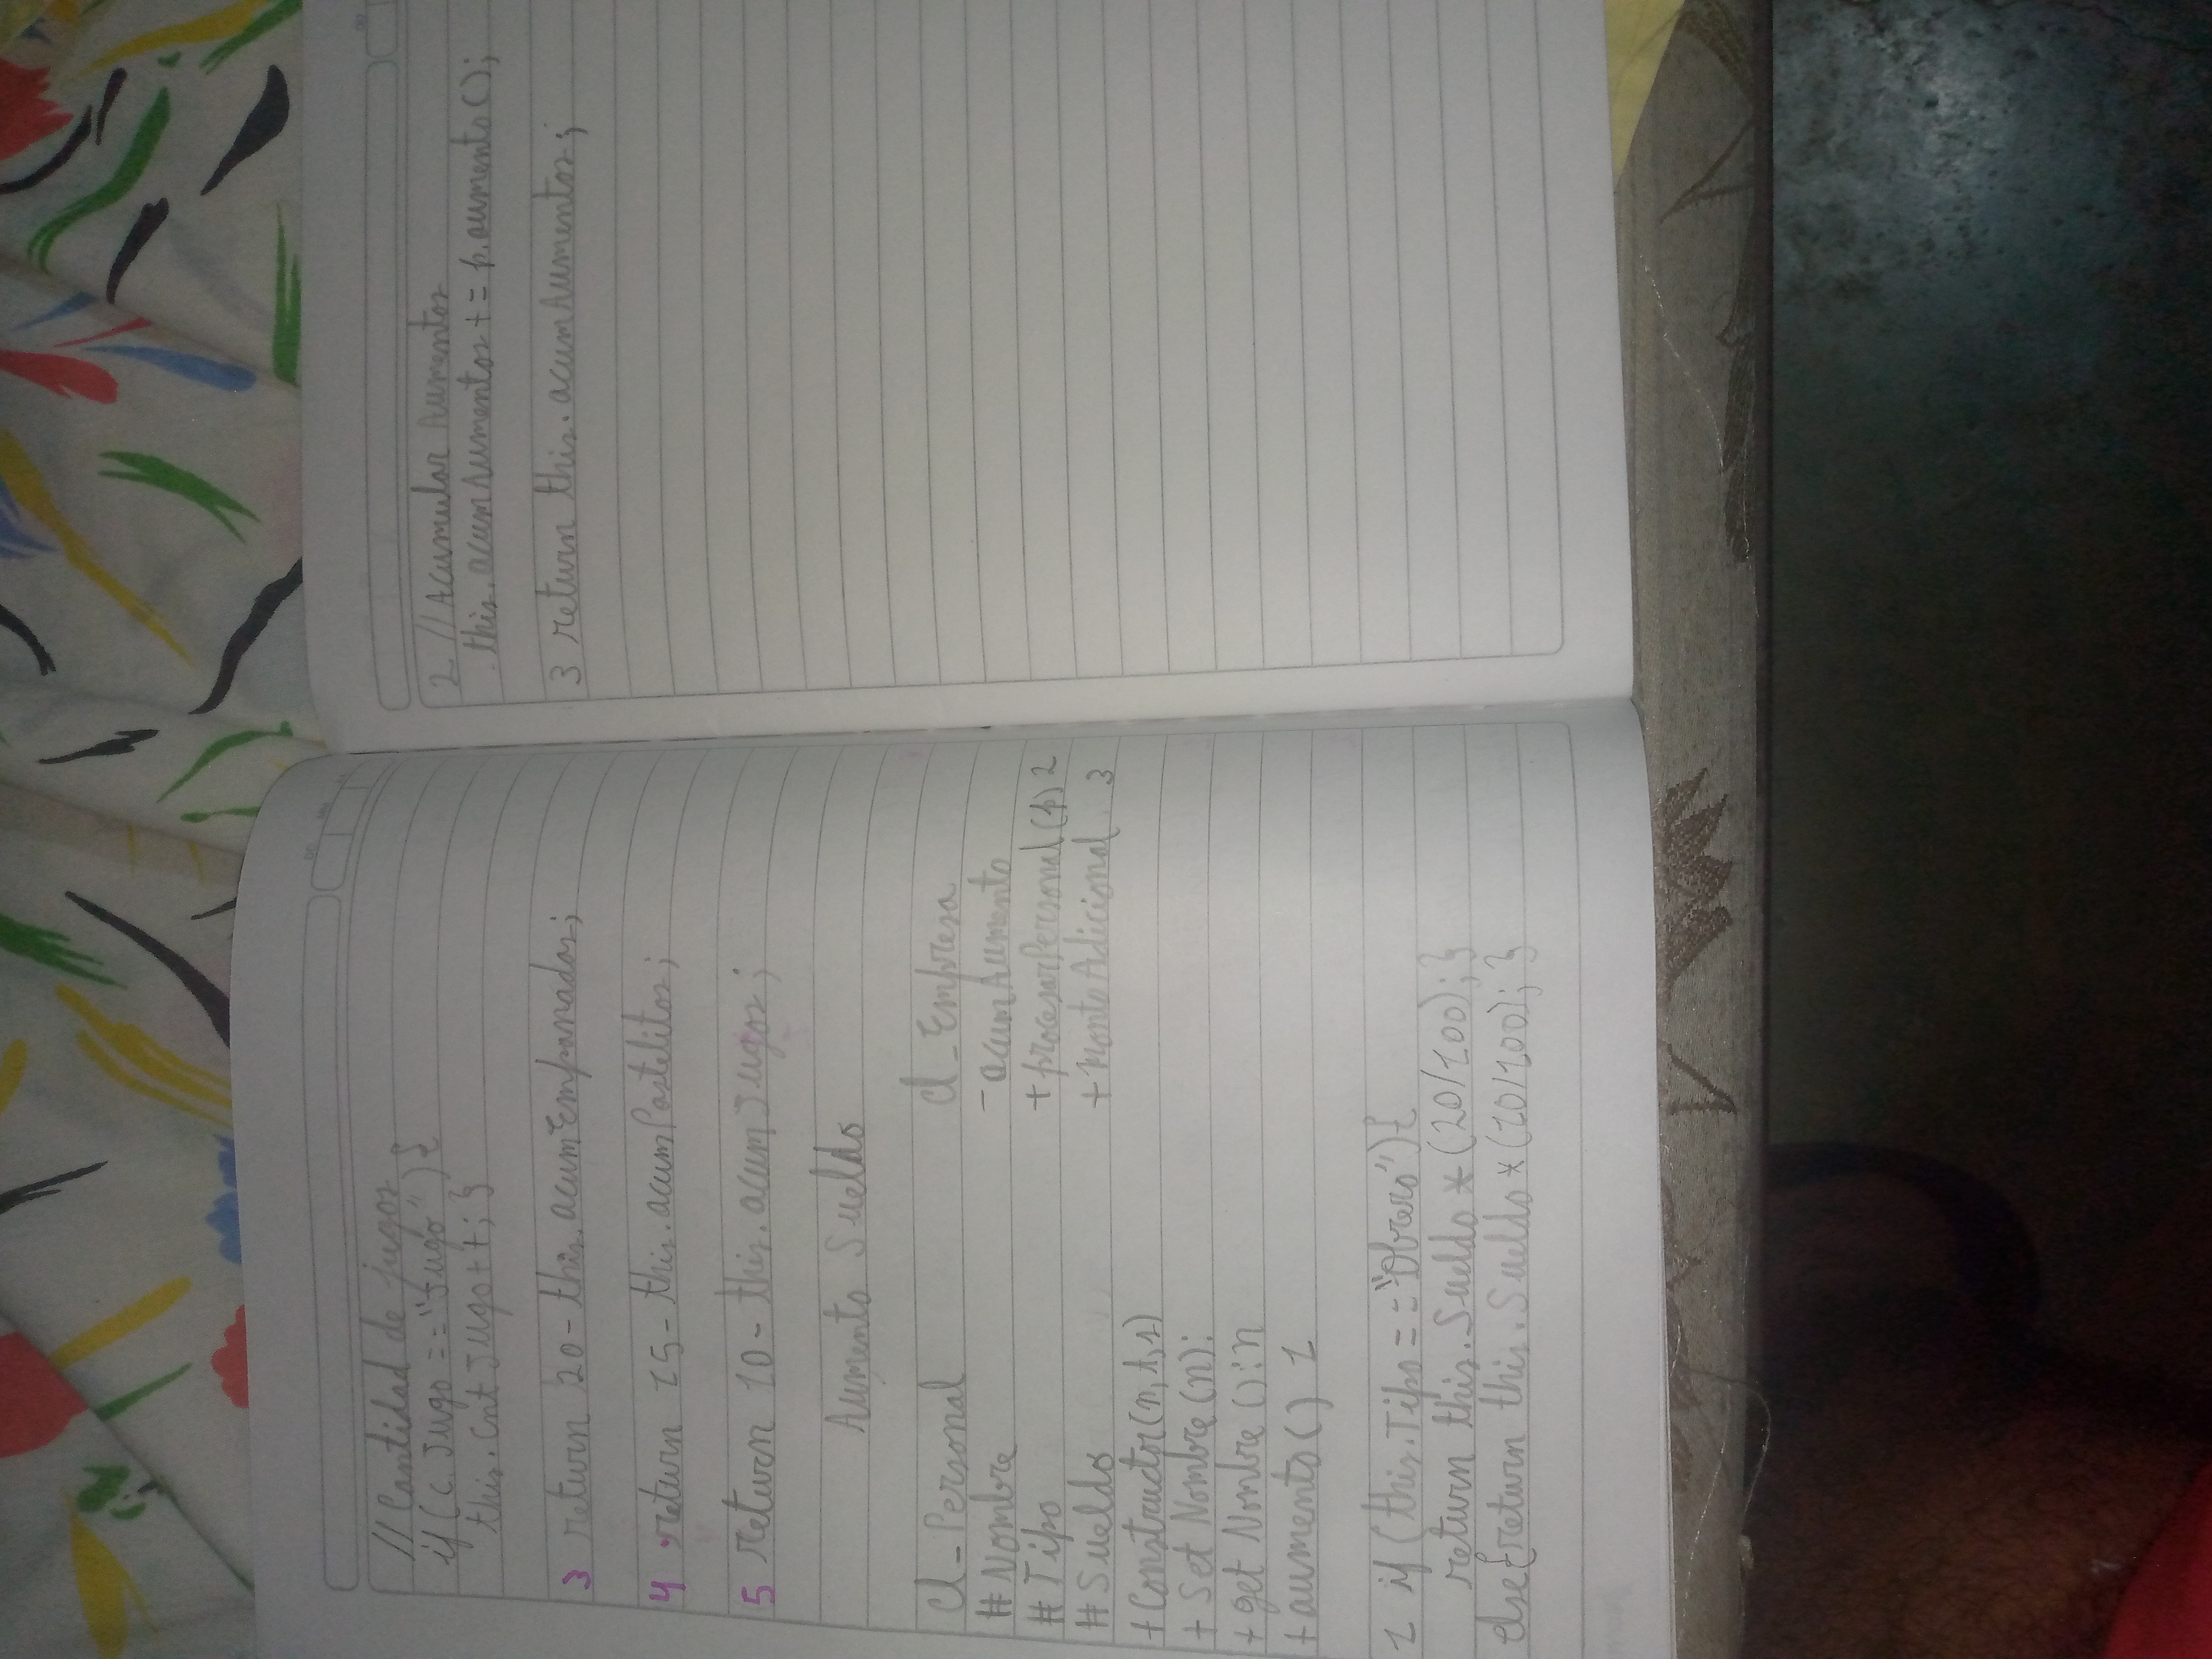 // Cantidad de jugos
if (c.Jugo == "Jugo"){
this.cntJugo++;}
3 return 20-this.acumEmpanadas;
4 return 15-this.acumPastelitos;
5 return 10-this.acumJugos;
Aumento Sueldo
Cl_Personal
# Nombre
# Tipo
# Sueldo
+ Constructor(n,t,s)
+ Set Nombre(n):
+ get Nombre():n
+ aumento() 1
Cl_Empresa
- acumAumento
+ procesarPersonal(p) 2
+ MontoAdicional 3
1 if (this.Tipo=="Obrero"){
return this.Sueldo*(20/100);}
else{return this.Sueldo*(10/100);}
2 //Acumular Aumentos
this.acumAumentos+=p.aumento();
3 return this.acumAumentos;